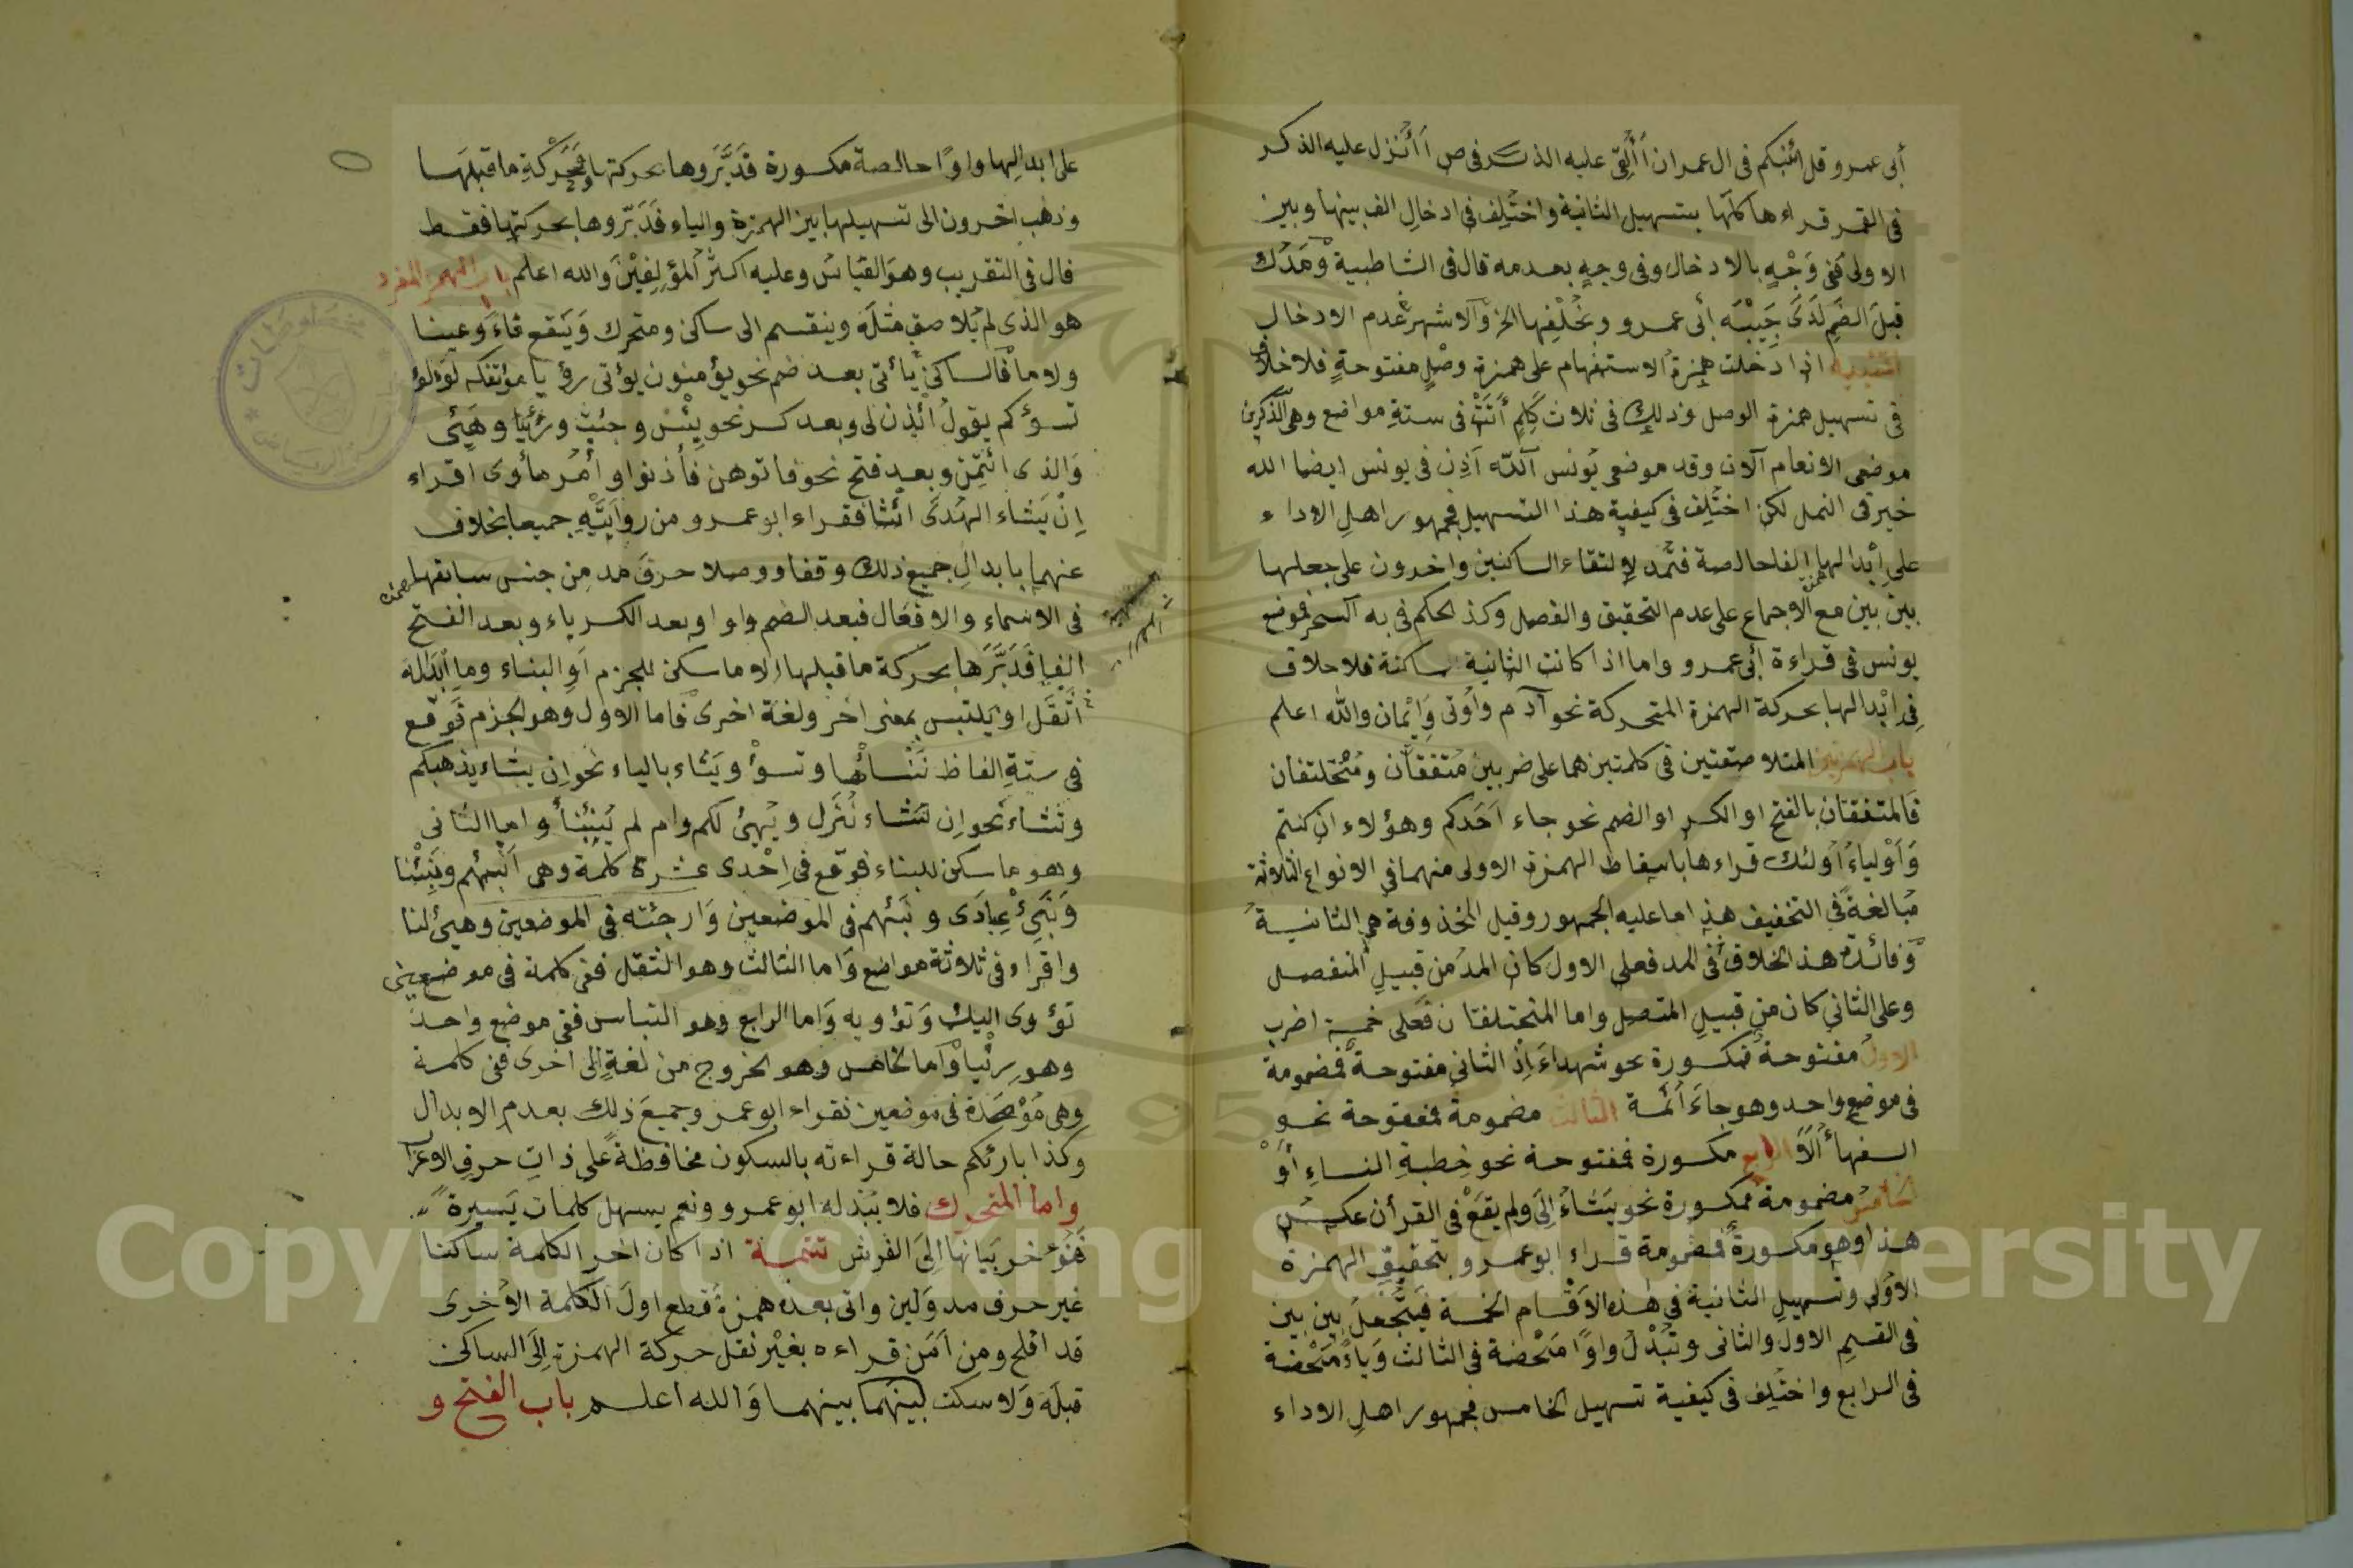 أبى عمرو قل ائنبكم فى ال عمران أألقى عليه الذكر فى ص أأنزل عليه الذكر
فى القمر قراءها كلها بتسهيل الثانية واختلف فى ادخال الف بينها وبين
الاولى ففى وجه بالادخال وفى وجه بعدمه قال فى الشاطبية ومدك
قبل الضم لدى حبيبه أبى عمرو وبخلفها الخ والاشهر عدم الادخال
تنبيه اذا دخلت همزة الاستفهام على همزة وصل مفتوحة فلا خلاف
فى تسهيل همزة الوصل وذلك فى ثلاث كلم أتت فى ستة مواضع وهى آلذكرين
موضعى الانعام آلان وقد موضعى يونس آلله اذن فى يونس ايضا الله
خير فى النمل لكن اختلف فى كيفية هذا التسهيل فجمهور اهل الاداء
على ابدالها الفا خالصة فتمد لالتقاء الساكنين واخرون على جعلها
بين بين مع الاجماع على عدم التحقيق والفصل وكذ الحكم فى به آلسحر فى موضع
يونس فى قراءة أبى عمرو واما اذا كانت الثانية ساكنة فلا خلاف
فى ابدالها بحركة الهمزة المتحركة نحو آدم واوتى وايمان والله اعلم
باب الهمزتين المتلاصقتين فى كلمتين هما على ضربين متفقتان ومختلفتان
فالمتفقتان بالفتح او الكسر او الضم نحو جاء احدكم وهؤلاء ان كنتم
واولياء اولئك قراءها باسقاط الهمزة الاولى منهما فى الانواع الثلاثة
مبالغة فى التخفيف هذا ما عليه الجمهور وقيل المخذوفة هى الثانية
وفائدة هذ الخلاف فى المد فعلى الاول كان المد من قبيل المنفصل
وعلى الثانى كان من قبيل المتصل واما المختلفتان فعلى خمسة اضرب
الاول مفتوحة فمكسورة نحو شهداء اذ الثانى مفتوحة فمضمومة
فى موضع واحد وهو جاء أمة الثالث مضمومة فمفتوحة نحو
السفهاء ألا الرابع مكسورة فمفتوحة نحو خطبة النساء أو
الخامس مضمومة فمكسورة نحو يشاء الى ولم يقع فى القرأن عكس
هذا وهو مكسورة فمضمومة قراء ابو عمرو بتحقيق الهمزة
الاولى وتسهيل الثانية فى هذه الاقسام الخمسة فتجعل بين بين
فى القسم الاول والثانى وتبدل واوا محضة فى الثالث وياء محضة
فى الرابع واختلف فى كيفية تسهيل الخامس فجمهور اهل الاداء
على ابدالها واوا خالصة مكسورة فدبروها بحركتها وبحركة ما قبلها
وذهب اخرون الى تسهيلها بين الهمزة والياء فدبروها بحركتها فقط
قال فى التقريب وهو القياس وعليه اكثر المؤلفين والله اعلم باب الهمز المفرد
هو الذى لم يلاصق مثله وينقسم الى ساكن ومتحرك ويقع فاء وعينا
ولاما فالساكن يأتى بعد ضم نحو يؤمنون يؤتى رؤيا مؤتفكه لؤلؤ
تسؤكم يقول ائذن لى وبعد كسر نحو بئس وجئت ورئيا وهيئ
والذى ائتمن وبعد فتح نحو فاتوهن فأذنوا وأمر مأوى اقراء
ان يشاء الهدى ائتنا فقراء ابو عمرو من روايتيه جميعا بخلاف
عنهما بابدال جميع ذلك وقفا ووصلا حرف مد من جنس سابقها
فى الاسماء والافعال فبعد الضم واوا وبعد الكسر ياء وبعد الفتح
الفا فدبرها بحركة ما قبلها الا ما سكن للجزم او البناء وما ابداله
اثقل او يلتبس بمعنى اخر ولغة اخرى فاما الاول وهو الجزم فوقع
فى ستة الفاظ ننسأها وتسؤ ويشاء بالياء نحو ان يشاء يذهبكم
ونشاء نحو ان نشاء ننزل ويهيئ لكم وام لم ينبأ واما الثانى
وهو ما سكن للبناء فوقع فى احدى عشرة كلمة وهى انبئهم ونبئنا
ونبئ عبادى ونبئهم فى الموضعين وارجئه فى الموضعين وهيئ لنا
واقراء فى ثلاثة مواضع واما الثالث وهو الثقل ففى كلمة فى موضعين
تؤوى اليك وتؤويه واما الرابع وهو التباس ففى موضع واحد
وهو رئيا واما الخامس وهو الخروج من لغة الى اخرى ففى كلمة
وهى مؤصدة فى موضعين فقراء ابو عمرو جميع ذلك بعدم الابدال
وكذا بارئكم حالة قراءته بالسكون محافظة على ذات حرف الاعراب
واما المتحرك فلا يبدله ابو عمرو ونعم يسهل كلمات يسيرة
فنؤخر بيانها الى الفرش تتمة اذا كان اخر الكلمة ساكنا
غير حرف مد ولين واتى بعده همزة قطع اول الكلمة الاخرى
قد افلح ومن امن قراءه بغير نقل حركة الهمزة الى الساكن
قبله ولا سكت بينهما بينهما والله اعلم باب الفتح و
Copyright © King Saud University
1957